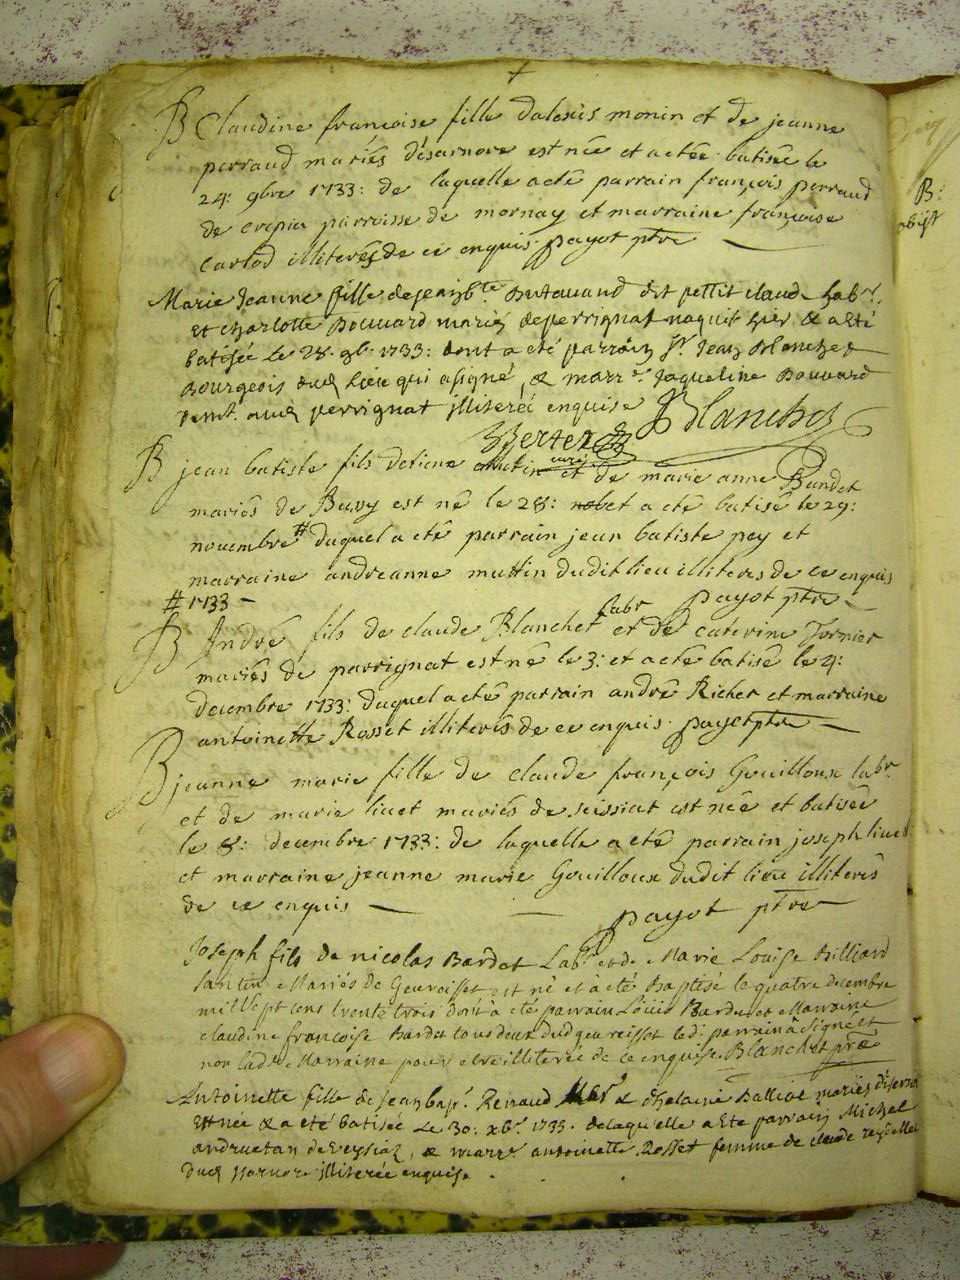 +
B Claudine françoise fille dalexis monin et de jeanne
perraud mariés disarnore est née et a étée batisée le
24: 9bre 1733: de laquelle a eté parrain françois perraud
de crepia parroisse de mornay et marraine françoise
Carlod illiterés de ce enquis. payot ptre
Marie Jeanne fille de jeanbte. Butavand dit pettit claude Labr.
Et Charlotte Bouvard mariés de perrignat naquit hier & a Eté
batisée Le 28. 9b. 1733: dont a eté parrain Sr. Jean Blanchet
Bourgeois dud. Lieu qui a signé, & marre. Jaqueline Bouvard
dud. perrignat illiterée enquise Blanchet
curé
B jean batiste fils detiene et de marie anne Bundet
mariés de est né le 28: et a eté batisé le 29:
novembre # duquel a eté parrain jean batiste pey et
marraine andreanne muttin dudit lieu illiteres de ce enquis
# 1733 - payot ptre
B André fils de claude Blanchet labr et de caterine Tornier
mariés de parrignat est né le 3: et a eté batisé le 4:
decembre 1733: duquel a eté parrain andré Richet et marraine
antoinette Rosset illiterés de ce enquis. payot ptre
B jeanne marie fille de claude françois Gouilloux labr.
et de marie livet mariés de seissiat est née et batisée
le 8: decembre 1733: de laquelle a eté parrain joseph livet
et marraine jeanne marie Gouilloux dudit lieu illiterés
de ce enquis
payot ptre
Joseph fils de nicolas Bardet Labr. et de Marie Louise Billiard
Mariés de est né et à eté Baptisé le quatre decembre
mil sept cens trente trois dont a eté parrain Louis Bardet et Marraine
claudine françoise Bardet tous deux dud. led. parrain a signé et
non lad. Marraine pour etre illiterée de ce enquise. Blanchet ptre
Antoinette fille de jean bapt. Renaud & mariés
Est née & a été batisée Le 30. xbr. 1733. delaquelle a Eté parrain Michel
andruetan de veyssiat, & marre. antoinette Rosset femme de claude
dud. illiterée enquise.
B: